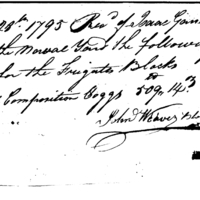 24th. 1795 Recd. of Isaac Gan
the Naval Yard the follow
for the Frigates Blocks
Composition Coggs 509. 14
John Weaver